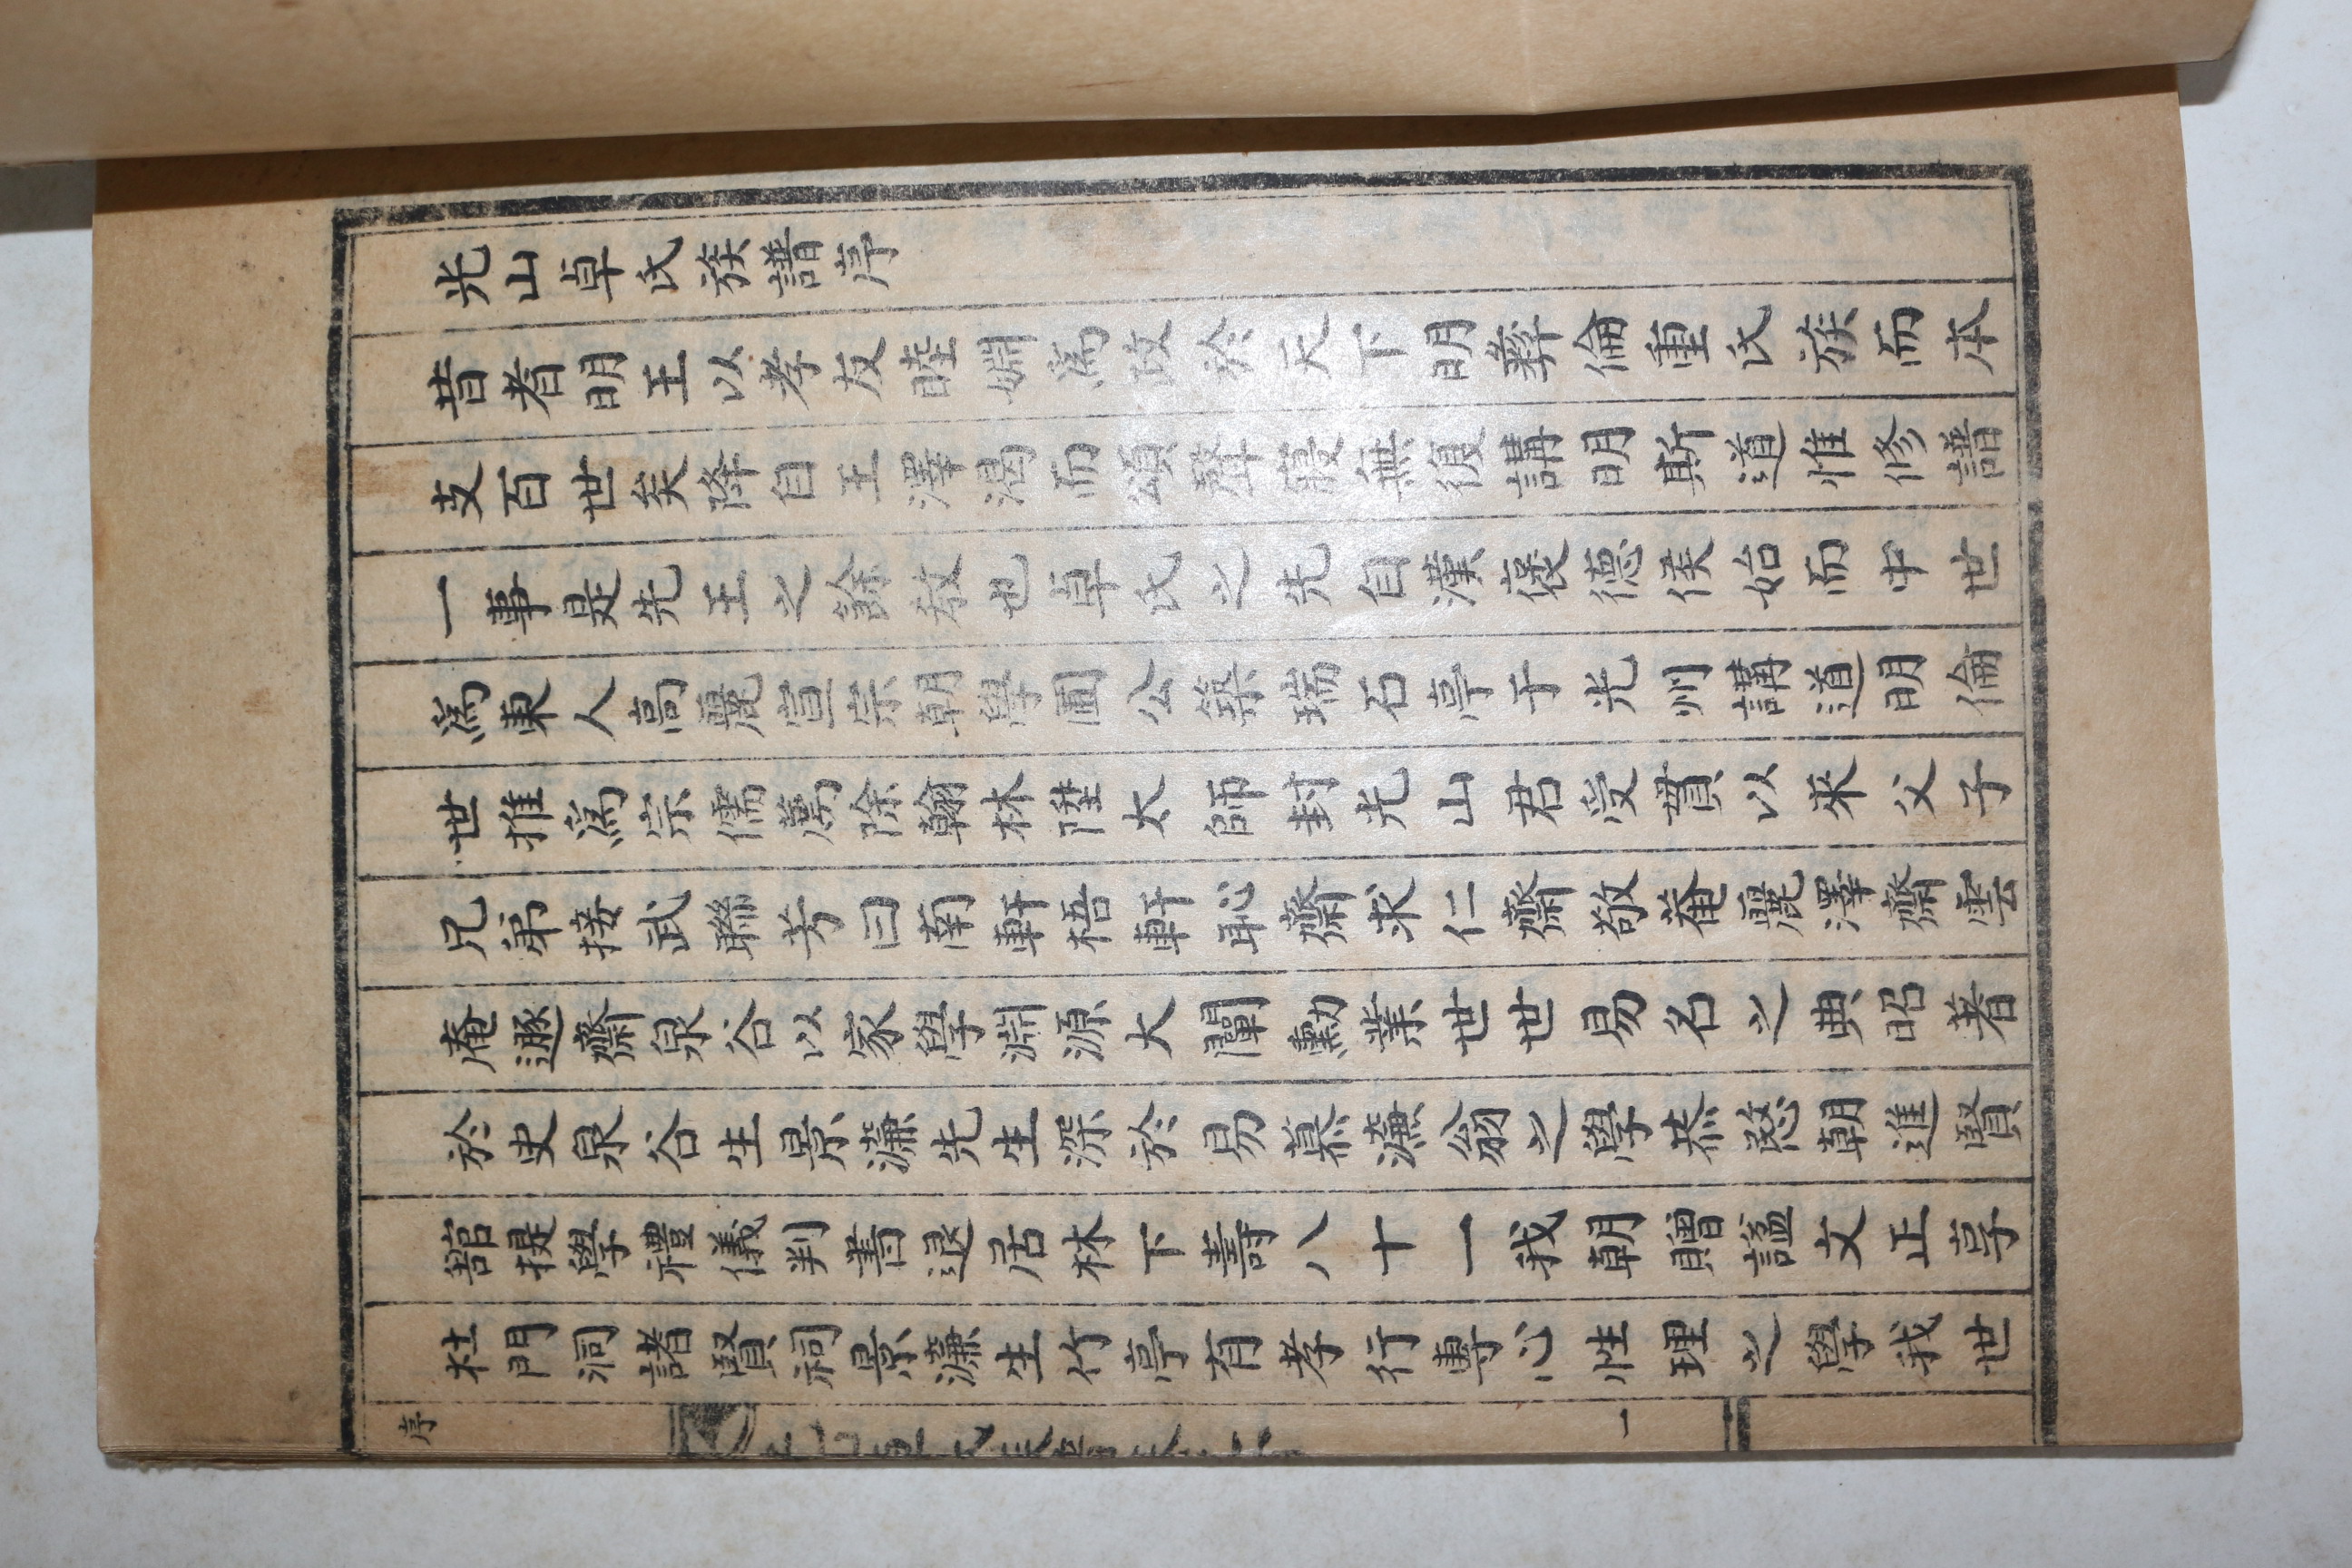 光山卓氏族譜序
昔者明王以孝友睦婣爲政於天下明彛倫重氏族而本
支百世矣降自王澤渴而頌聲寢無復講明斯道惟修譜
一事是先王之餘敎也卓氏之先自漢褒德侯始而中世
爲東人高麗宣宗朝學圃公築瑞石亭于光州講道明倫
世推爲宗儒薦除翰林陞太師封光山君受貫以來父子
兄弟接武聯芳曰南軒梧軒恥齋求仁齋敬菴麗澤齋雲
庵遯齋泉谷以家學淵源大闡勳業世世易名之典昭著
於史泉谷生景濂先生深於易慕濂翁之學恭愍朝進賢
舘提學禮儀判書退居林下壽八十一我朝贈諡文正享
杜門洞諸賢祠景濂生竹亭有孝行專心性理之學我世
序
一